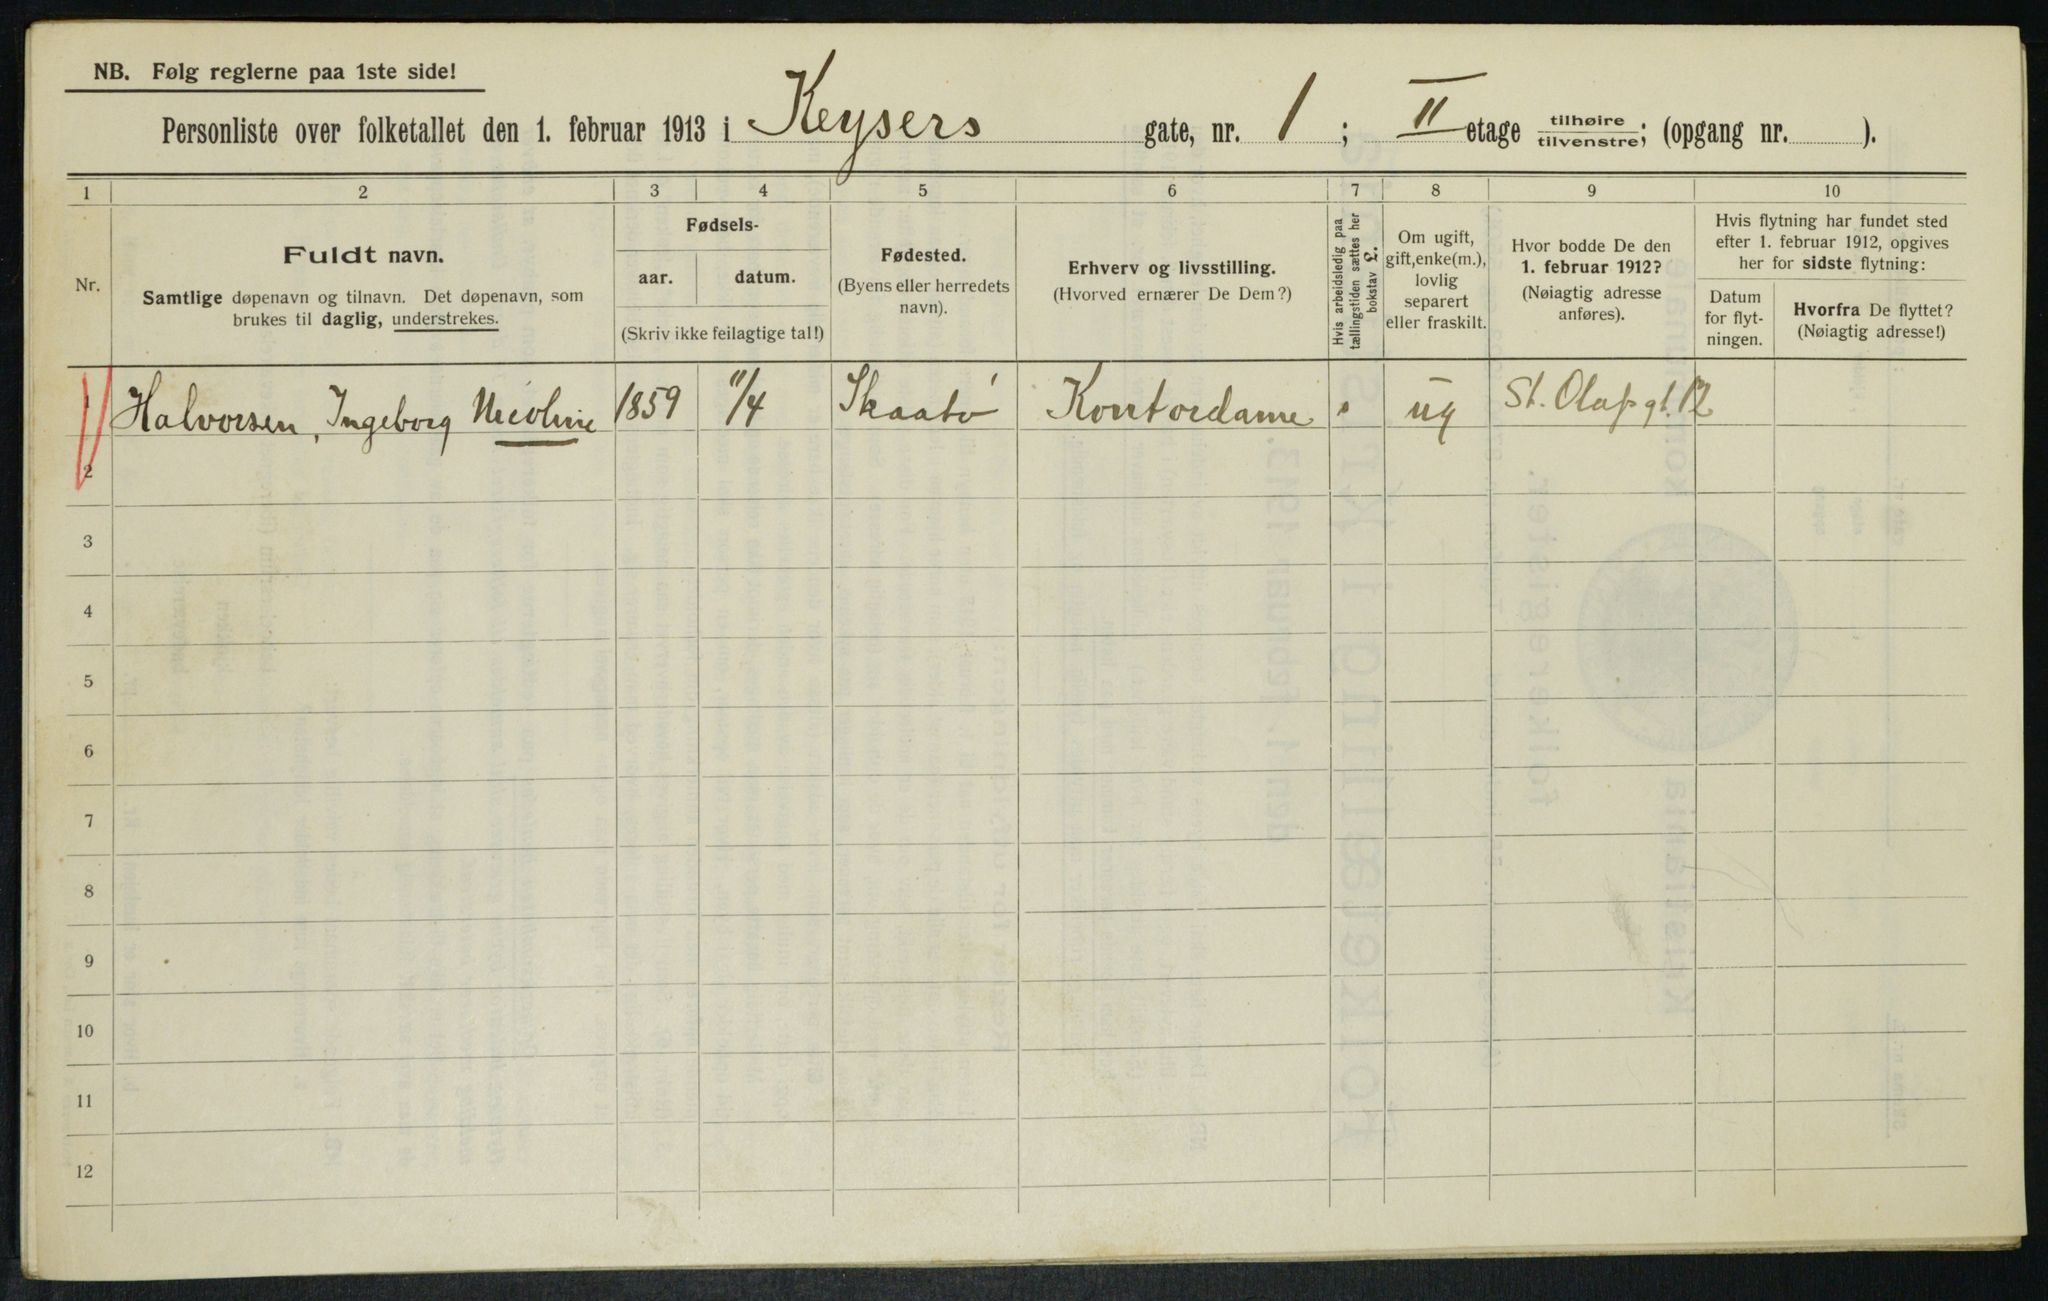 NB. Følg reglerne paa 1ste side!
Personliste over folketallet den 1. februar 1913 i Keysers gate, nr. 1; II etage tilhøire/tilvenstre; (opgang nr. ).
1 2 3 4 5 6 7 8 9 10
Nr.
Fuldt navn.
Samtlige døpenavn og tilnavn. Det døpenavn, som
brukes til daglig, understrekes.
Fødsels-
aar. datum.
(Skriv ikke feilagtige tal!)
Fødested.
(Byens eller herredets
navn).
Erhverv og livsstilling.
(Hvorved ernærer De Dem?)
Hvis arbeidsledig paa
tællingstiden sættes her
bokstav L.
Om ugift,
gift, enke(m.),
lovlig
separert
eller fraskilt.
Hvor bodde De den
1. februar 1912?
(Nøiagtig adresse
anføres).
Hvis flytning har fundet sted
efter 1. februar 1912, opgives
her for sidste flytning:
Datum
for flyt-
ningen.
Hvorfra De flyttet?
(Nøiagtig adresse!)
1 Halvorsen, Ingeborg Nicoline 1859 11/4 Skaatö Kontordame ug St. Olafs gt. 12
2
3
4
5
6
7
8
9
10
11
12